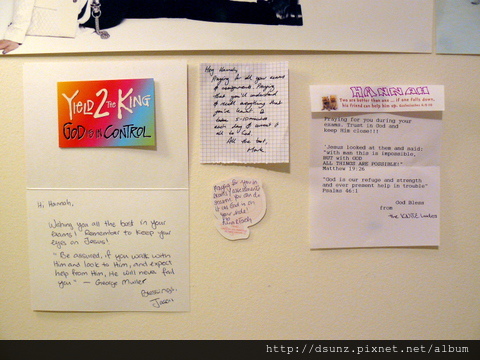 YIELD 2 THE KING
GOD IS IN CONTROL
Hi Hannah,
Wishing you all the best in your
Exams! Remember to keep your
eyes on Jesus!
"Be assured, if you walk with
Him and look to Him, and expect
help from Him, He will never fail
you" - George Muller
Blessings,
Jason
Hey Hannah,
Praying for all your exams
& assignments. Praying
that you'll understand
& recall everything that
you've learnt.
5-10mins
each day
all to God
All the best,
Mark
HANNAH
Two are better than one ... if one falls down,
his friend can help him up. Ecclesiastes 4:9-10
Praying for you during your
exams. Trust in God and
keep Him close!!!
'Jesus looked at them and said:
"With man this is impossible,
BUT with GOD
ALL THINGS ARE POSSIBLE!"
Matthew 19:26
"God is our refuge and strength
and ever present help in trouble"
Psalms 46:1
God Bless
from
The
http://dsunz.pixnet.net/album